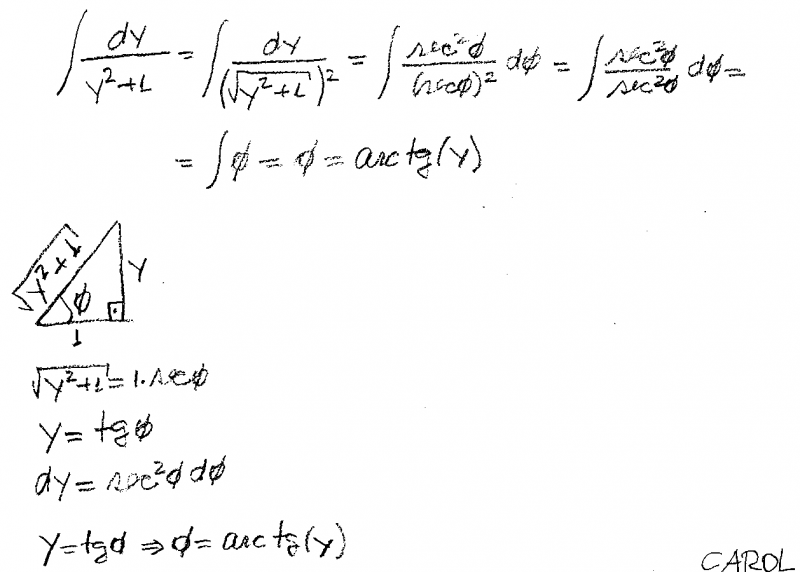 ∫ dy/(y²+1) = ∫ dy/(√(y²+1))² = ∫ sec²ϕ/(secϕ)² dϕ = ∫ sec²ϕ/sec²ϕ dϕ =
= ∫ϕ = ϕ = arctg(y)
√(y²+1)
y
ϕ
1
√(y²+1) = 1.secϕ
y = tgϕ
dy = sec²ϕ dϕ
y = tgϕ ⇒ ϕ = arctg(y)
CAROL